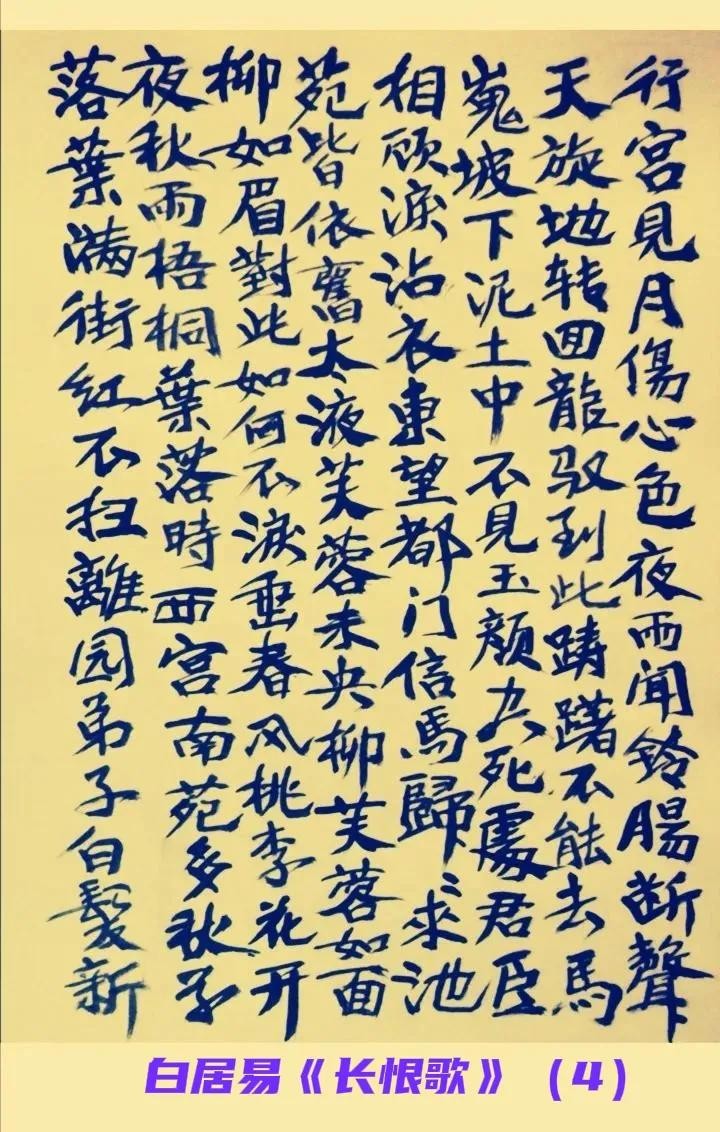 行宫見月傷心色夜雨闻铃腸断聲
天旋地转囬龍驭到此踌躇不能去馬
嵬坡下泥土中不見玉颜空死處君臣
相顾淚沾衣東望都门信馬歸〻来池
苑皆依舊太液芙蓉未央柳芙蓉如面
柳如眉對此如何不淚垂春风桃李花开
夜秋雨梧桐葉落時西宫南苑多秋草
落葉满街红不扫離园弟子白髮新
白居易《长恨歌》（4）